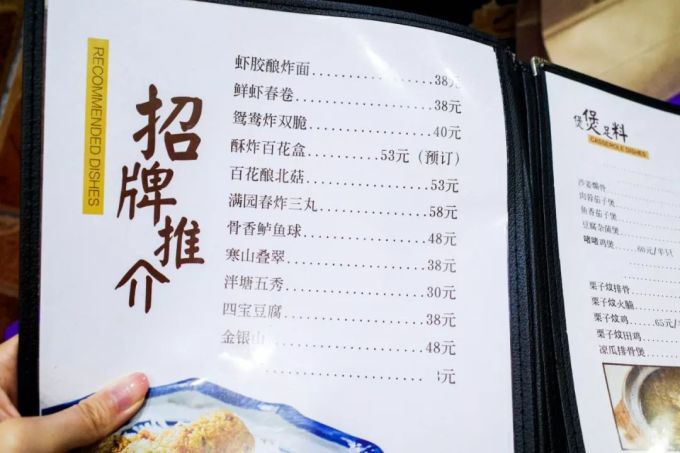 RECOMMENDED DISHES
招牌推介
虾胶酿炸面......38元
鲜虾春卷......38元
鸳鸯炸双脆......40元
酥炸百花盒......53元（预订）
百花酿北菇......53元
满园春炸三丸......58元
骨香鲈鱼球......48元
寒山叠翠......38元
泮塘五秀......30元
四宝豆腐......38元
金银山......48元
元
煲煲足料
CASSEROLE DISHES
肉蓉茄子煲
鱼香茄子煲
豆腐杂菌煲
啫啫鸡煲......60元/半只
栗子炆排骨
栗子炆火腩
栗子炆鸡......65元/
栗子炆田鸡
凉瓜排骨煲